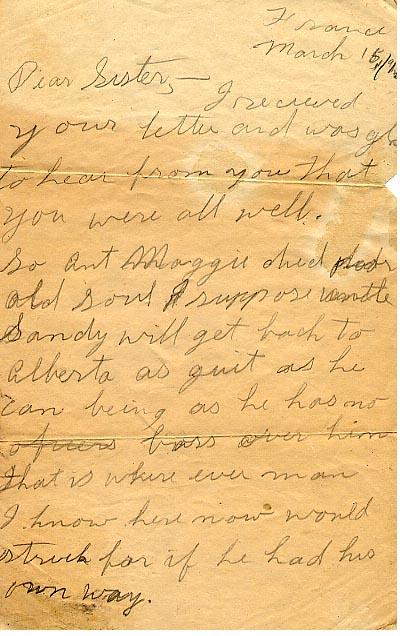 France
March 15/
Dear Sister,—
I recieved
your letter and was gl
to hear from you that
you were all well.
So Ant Maggie died poor
old soul I suppose unkle
Sandy will get back to
Alberta as quit as he
can being as he has no
officers boss over him
that is where ever man
I know here now would
struck for if he had his
own way.